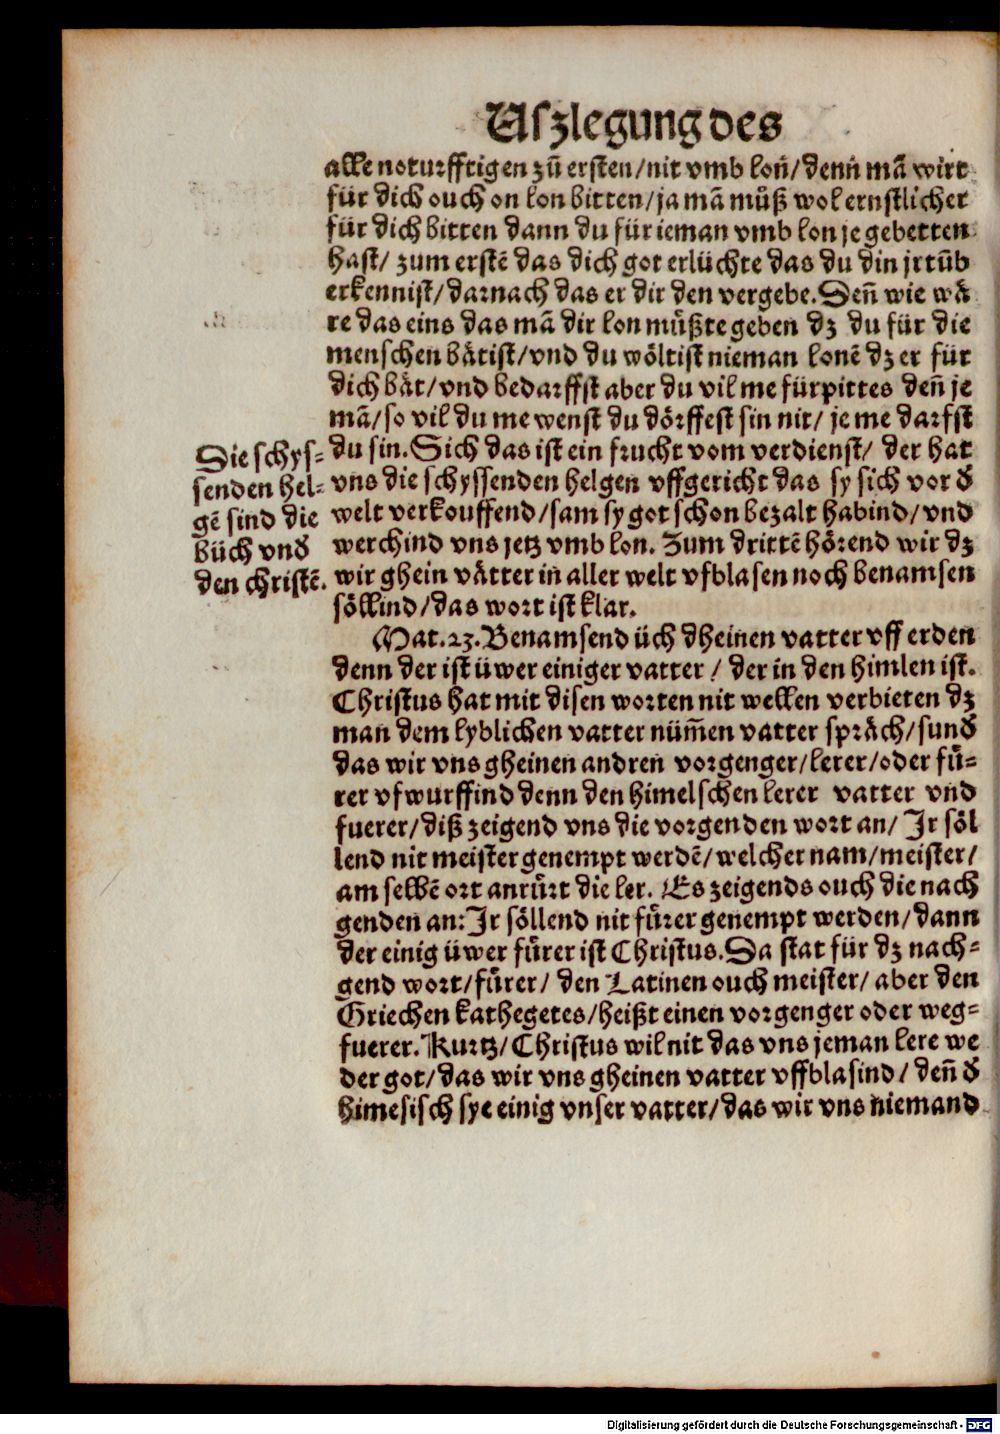 Uſzlegung des
alle noturfftigen zů erſten/nit vmb lon/denn mā wirt
für dich ouch on lon bitten/ja mā müß wol ernſtlicher
für dich bitten dann du für ieman vmb lon je gebetten
haſt/ zum erſtē das dich got erlüchte das du din jrtūb
erkenniſt/darnach das er dir den vergebe. Deñ wie wā
re das eins das mā dir lon müßte geben dz du für die
menſchen bätiſt/vnd du wöltiſt nieman lonē dz er für
dich bät/vnd bedarffſt aber du vil me fürpittes deñ je
mā/ſo vil du me wenſt du dörffeſt ſin nit/ je me darfſt
du ſin. Sich das iſt ein frucht vom verdienſt/ der hat
vns die ſchyſſenden helgen vffgericht das ſy ſich vor d̄
welt verkouffend/ſam ſy got ſchon bezalt habind/vnd
werchind vns jetz vmb lon. Zum drittē hörend wir dz
wir ghein vätter in aller welt vfblaſen noch benamſen
ſöllind/das wort iſt klar.
Die ſchyſ-
ſenden hel-
gē ſind die
büch vnd̄
den chriſtē.
Mat.23. Benamſend üch dheinen vatter vff erden
denn der iſt üwer einiger vatter/ der in den himlen iſt.
Chriſtus hat mit diſen worten nit wellen verbieten dz
man dem lyblichen vatter nüm̄en vatter ſpräch/ſund̄
das wir vns gheinen andren vorgenger/lerer/oder fů-
rer vfwurffind denn den himelſchen lerer vatter vnd
fuerer/diß zeigend vns die vorgenden wort an/ Ir ſöl
lend nit meiſter genempt werdē/welcher nam/meiſter/
am ſelbē ort anrůrt die ler. Es zeigends ouch die nach
genden an: Ir ſöllend nit fůrer genempt werden/dann
der einig üwer fůrer iſt Chriſtus. Da ſtat für dz nach-
gend wort/fůrer/ den Latinen ouch meiſter/ aber den
Griechen kathegetes/heißt einen vorgenger oder weg-
fuerer. Kurtz/Chriſtus wil nit das vns jeman lere we
der got/das wir vns gheinen vatter vffblaſind/ deñ d̄
himeſiſch ſye einig vnſer vatter/das wir vns niemand
Digitalisierung gefördert durch die Deutsche Forschungsgemeinschaft - DFG